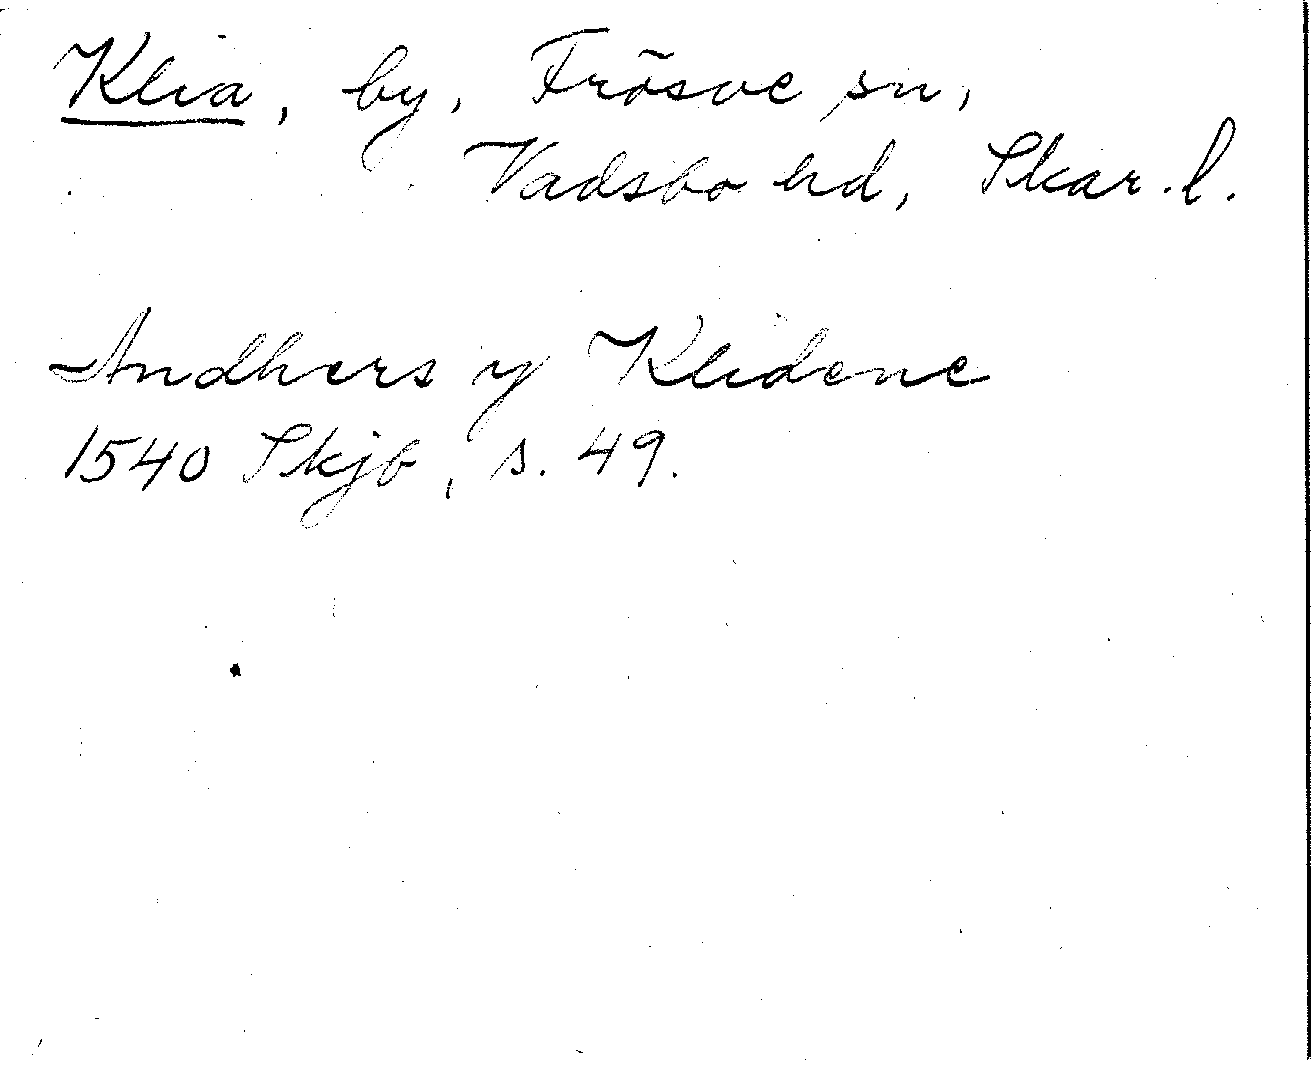 Klia, by, Frösve sn,
Vadsbo hd, Skar. l.
Andhers y Klidene
1540 Skjb, s. 49.